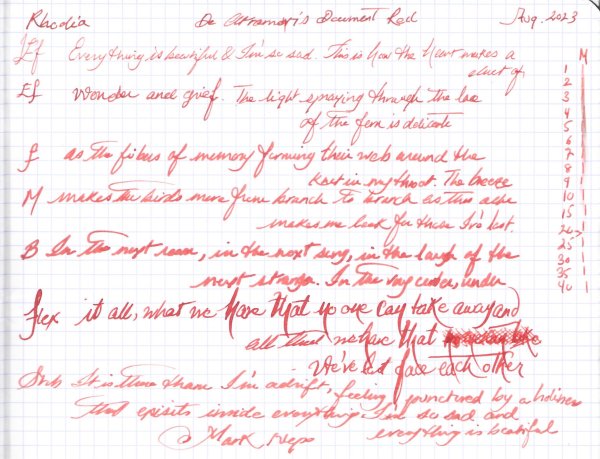 Rhodia De Atramentis Document Red Aug. 2023
Ef Everything is beautiful & I'm so sad. This is how the heart makes a
duet of
Ef wonder and grief. The light spraying through the lace
of the fern is delicate
F as the fibers of memory forming their web around the
knot in my throat. The breeze
M makes the birds move from branch to branch as this ache
makes me look for those I've lost
B In the next room, in the next song, in the laugh of the
next stranger. In the very center, under
flex it all, what we have that no one can take away and
all that we have that
We've lost face each other
Stub It is there I'm adrift, feeling punctured by a holiness
that exists inside everything. I'm so sad and
everything is beautiful
Mark Nepo
M
1
2
3
4
5
6
7
8
9
10
15
20
25
30
35
40